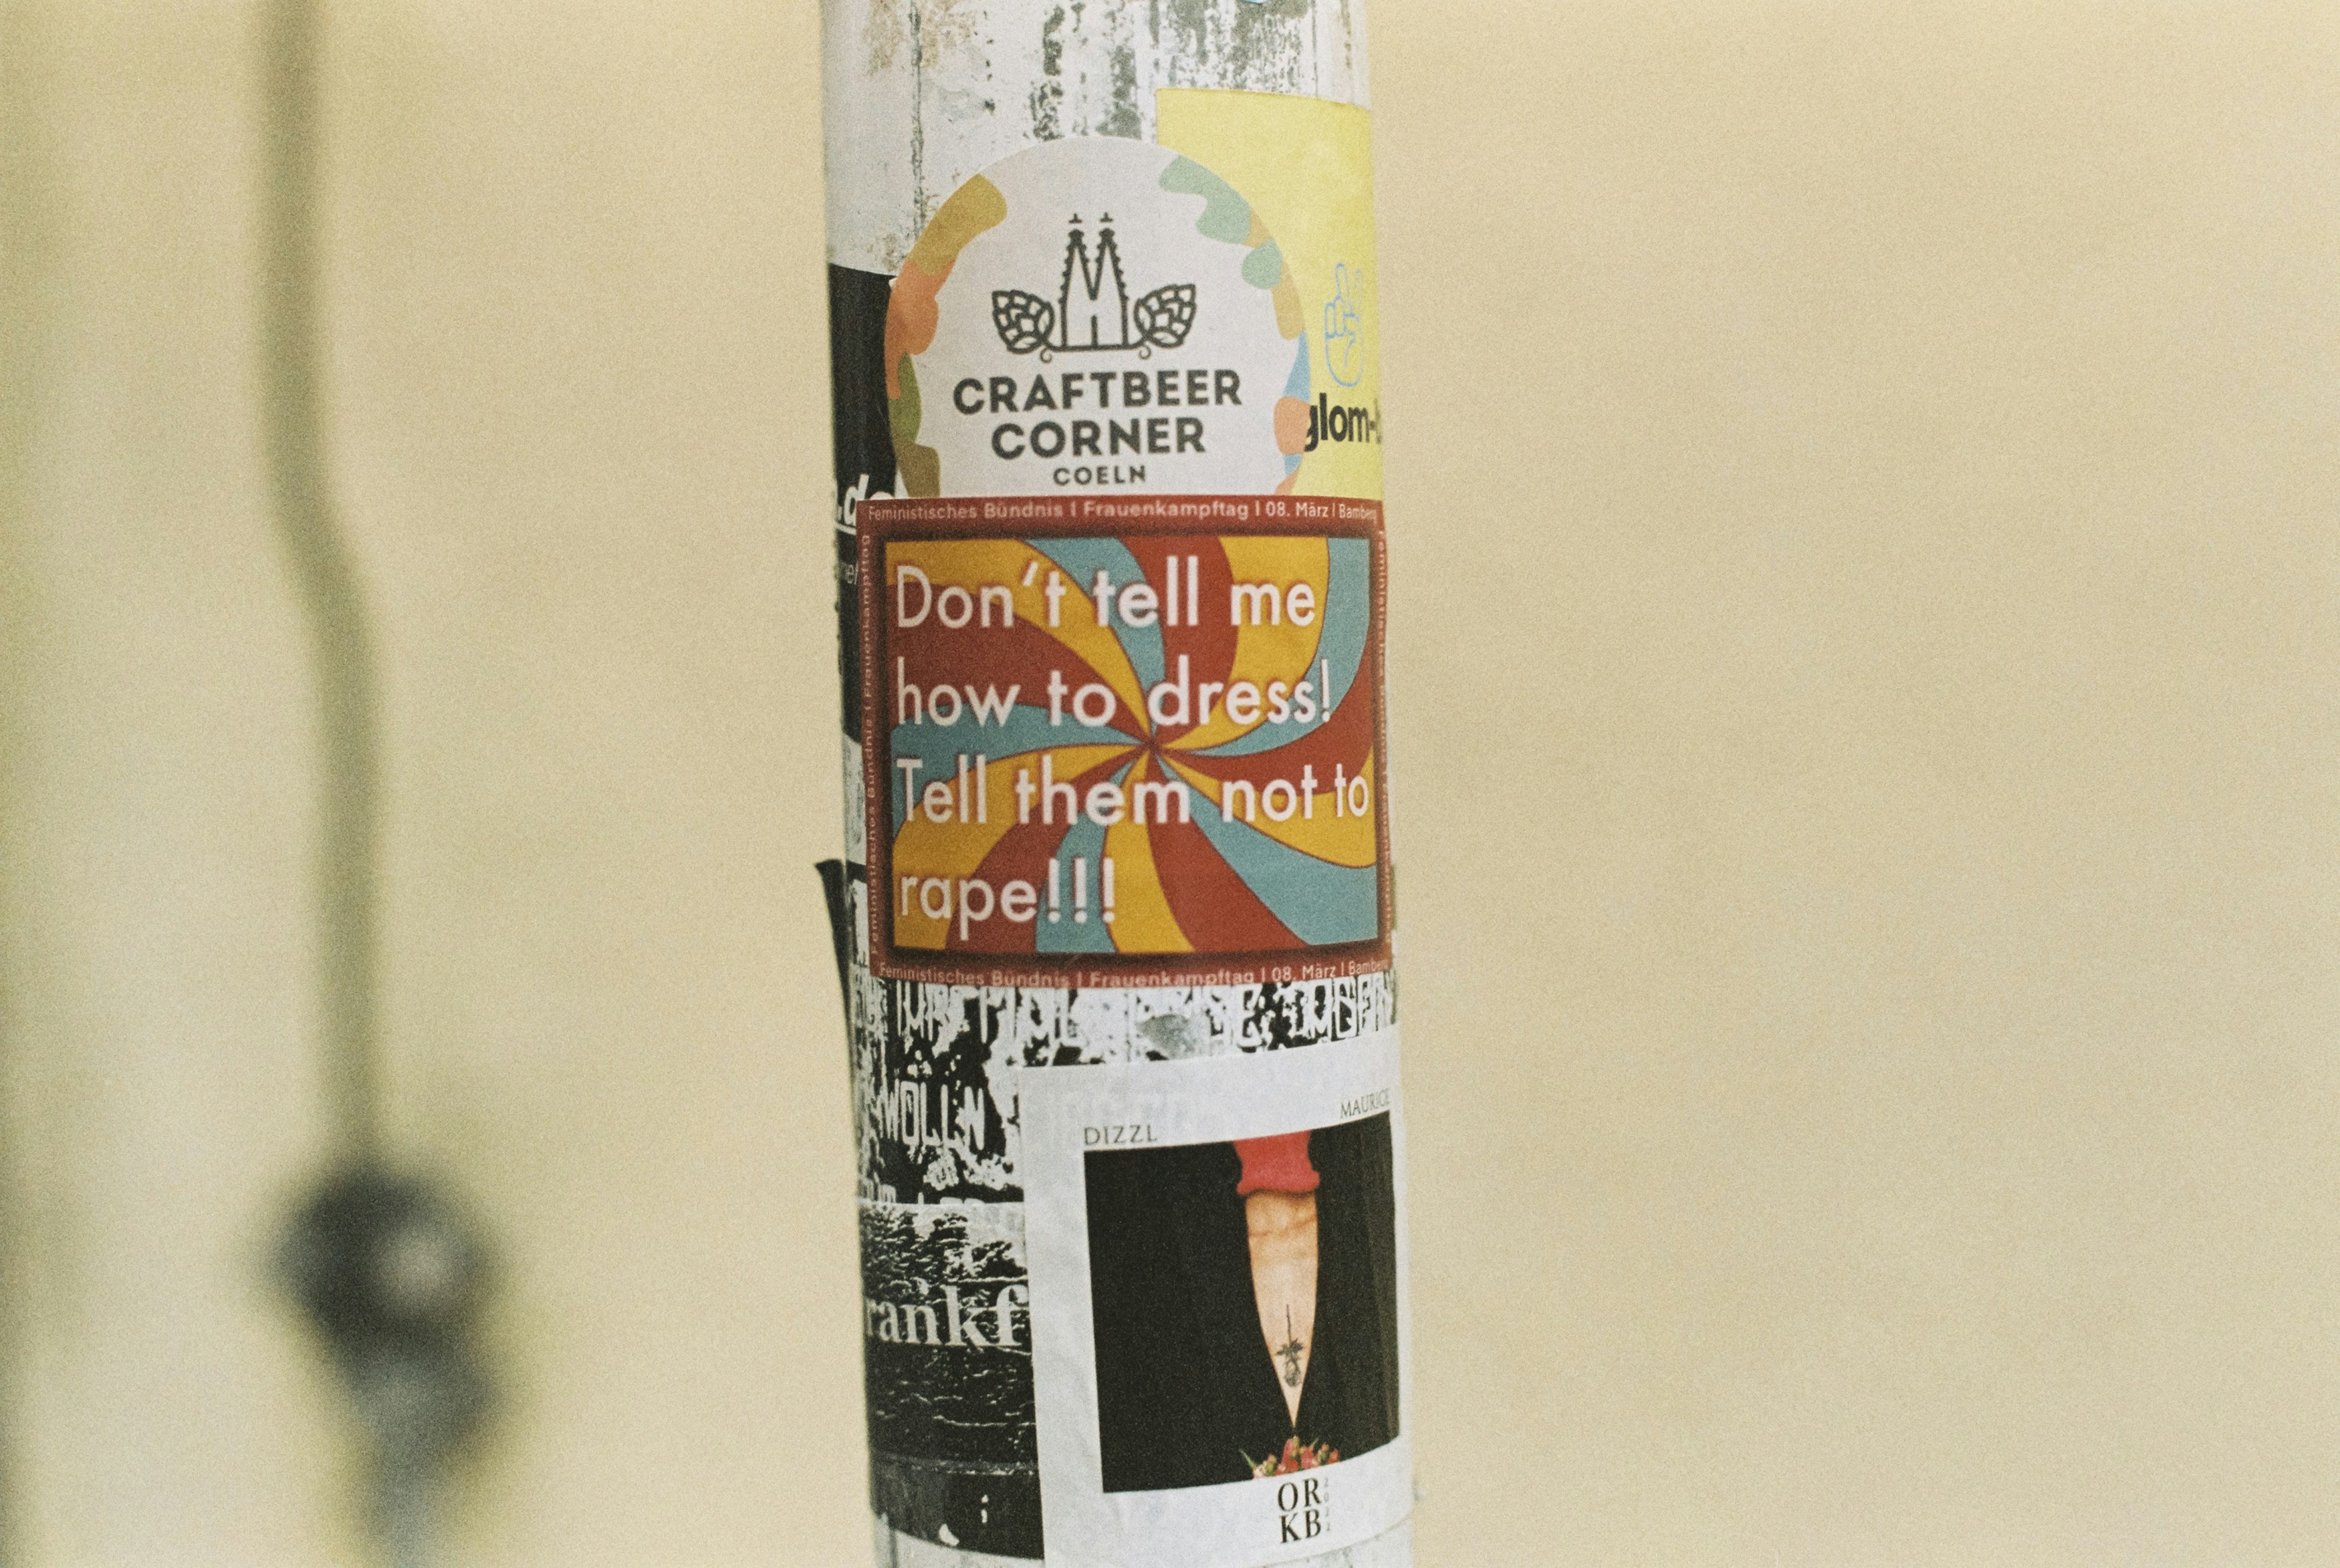 CRAFTBEER
CORNER
COELN
glom-
Feministisches Bündnis | Frauenkampftag | 08. März | Bamberg
Feministisches Bündnis | Frauenkampftag
Don't tell me
how to dress!
Tell them not to
rape!!!
Feministisches Bündnis | Frauenkampftag | 08. März | Bamberg
MÖLLN
MAURICE
DIZZL
rankf
OR
KB